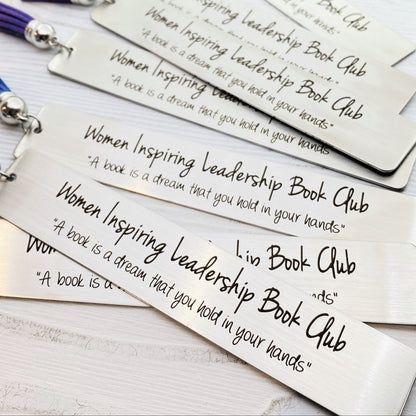 your hands"
Women Inspiring Leadership Book Club
"A book is a dream that you hold in your hands"
Women Inspiring Leadership Book Club
"A book is a dream that you hold in your hands"
Women Inspiring Leadership Book Club
"A book is a dream that you hold in your hands"
Women Inspiring Leadership Book Club
"A book is a dream that you hold in your hands"
Book Club
"A book is a
hands"